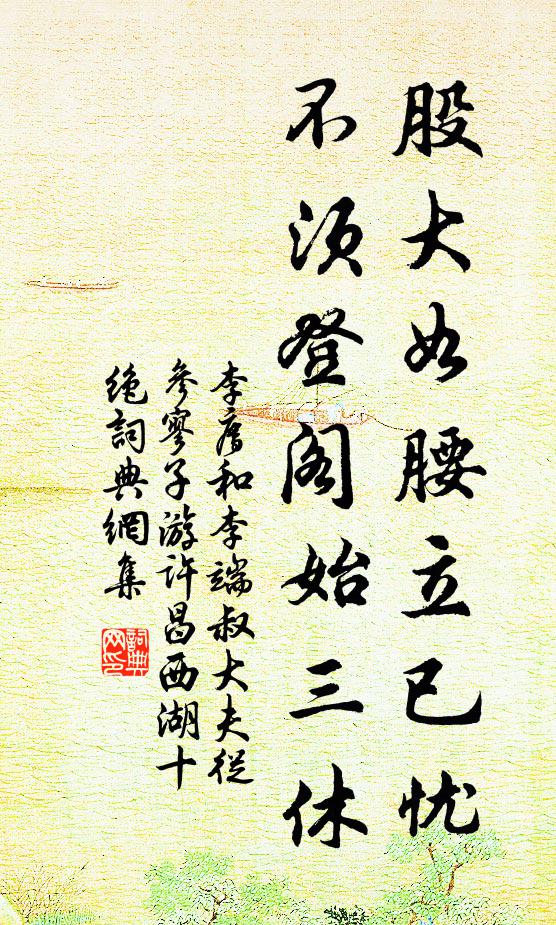 股大如腰立已忧
不须登阁始三休
李廌和李端叔大夫從
參寥子游許昌西湖十
絶詞典網集
詞典
网印